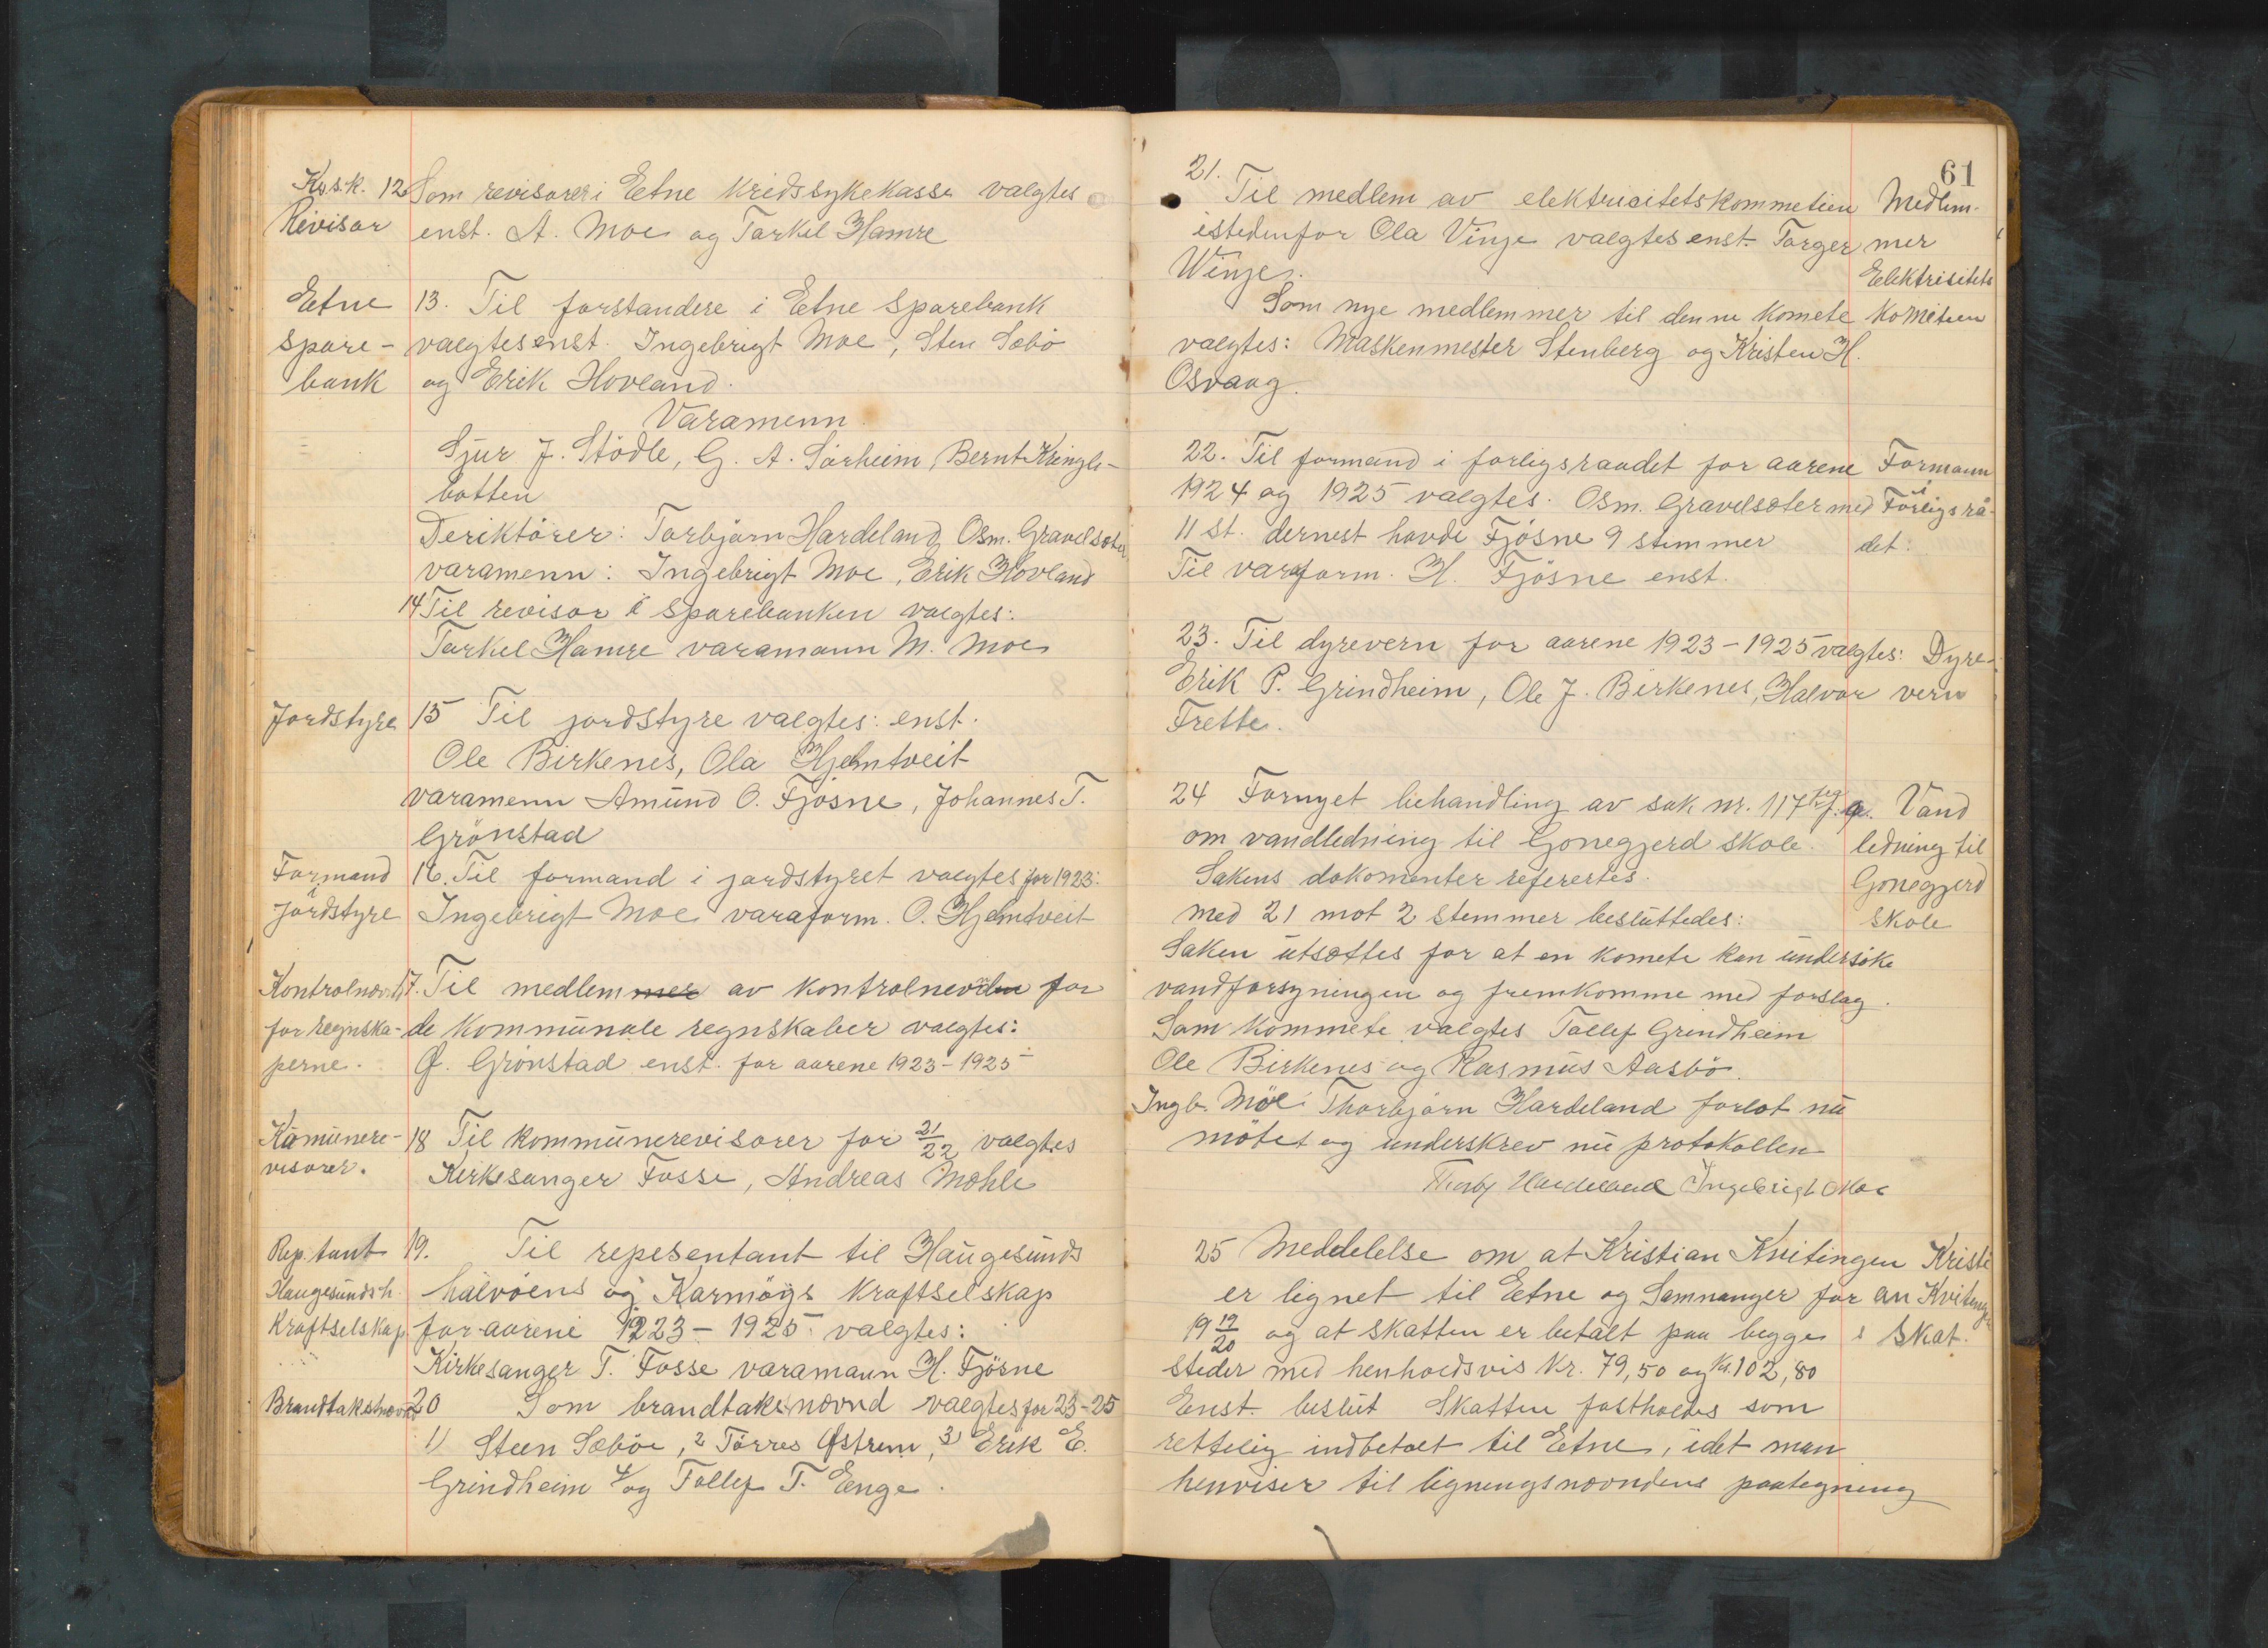 Krs.k. 12 Som revisorer i Etne kridssykekasse valgtes
Revisor enst. A. Moe og Torkil Hamre
Etne 13. Til forstandere i Etne Sparebank
Spare- valgtes enst. Ingebrigt Moe, Sten Sæbö
bank og Erik Hovland.
Varamenn
Sjur J. Stödle, G. A. Sörheim, Bernt Kringle-
botten
Deriktörer: Torbjörn Hardeland, Osm. Gravelsæter
varamenn: Ingebrigt Moe, Erik Hovland
14 Til revisor i sparebanken valgtes:
Torkel Hamre varamann M. Moe
Jordstyre 15 Til jordstyre valgtes: enst.
Ole Birkenes, Ola Hjelmtveit
varamenn Amund O. Fjösne, Johannes T.
Grönstad
Formand 16. Til formand i jordstyret valgtes for 1923:
i jordstyre Ingebrigt Moe varaform. O. Hjelmtveit
Kontrolnævnd 17. Til medlemmer av kontrolnevden for
for regnska- de kommunale regnskaber valgtes:
perne. Ø. Grönstad enst. for aarene 1923-1925
Komunere- 18 Til kommunerevisorer for 21/22 valgtes
visorer. Kirkesanger Fosse, Andreas Mæhle
Rep.tant 19. Til repesentant til Haugesunds
Haugesunds h. halvöens og Karmöys Kraftselskap
Kraftselskap for aarene 1923-1925 valgtes:
Kirkesanger T. Fosse varamann H. Fjösne
Brandtakstnævnd 20 Som brandtakstnævnd valgtes for 23-25
1) Steen Sæböe, 2 Törres Østrem, 3) Erik E.
Grindheim 4/ og Tollef T. Enge.
61
21. Til medlem av elektricitetskommetien Medlem-
istedenfor Ola Vinje valgtes enst. Torger mer
Winje. Elektrisitets
Som nye medlemmer til denne komete Kometeen
valgtes: Maskenmester Stenberg og Kristen H.
Osvaag.
22. Til formand i forligsraadet for aarene Formann
1924 og 1925 valgtes. Osm. Gravelsæter med i Forligsrå-
11 st. dernest havde Fjösne 9 stemmer det.
Til varaform. H. Fjösne enst.
23. Til dyrevern for aarene 1923-1925 valgtes: Dyre-
Erik P. Grindheim, Ole J. Birkenes, Halvor vern
Frette.
24 Fornyet behandling av sak nr. 117 f. a. Vand
om vandledning til Gonegjerd skole. ledning til
Sakens dokomenter referertes. Gonegjerd
Med 21 mot 2 stemmer besluttedes: skole
Saken utsættes for at en komete kan undersöke
vandforsyningen og fremkomme med forslag.
Som kommete valgtes Tollef Grindheim
Ole Birkenes og Rasmus Aasbö.
Ingb. Moe Thorbjörn Hardeland forlot nu
mötet og underskrev nu protokollen
Thorbj Hardeland Ingebrigt Moe
25 Meddelelse om at Kristian Kvitingen Kristi
er lignet til Etne og Samnanger for an Kvitinge
19 19/20 og at skatten er betalt paa begge s skat.
steder med henholdsvis kr. 79,50 og kr. 102,80
Enst. beslut Skatten fastholdes som
rettelig indbetalt til Etne, idet man
henviser til ligningsnævndens paategning